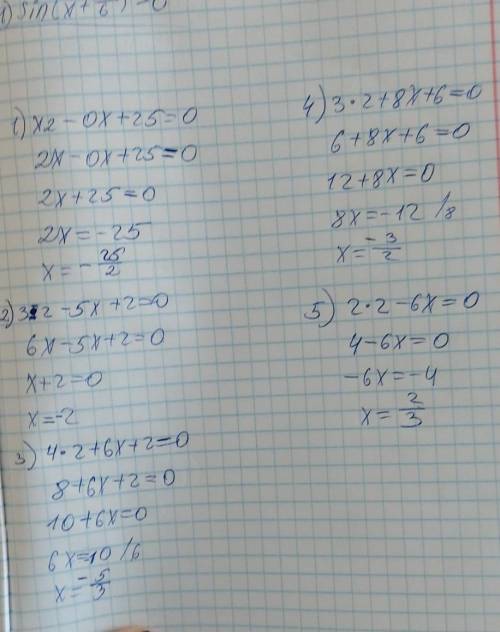 1) sin(x+
1) x2 - 0x + 25 = 0
2x - 0x + 25 = 0
2x + 25 = 0
2x = -25
x = - 25/2
2) 3 2 - 5x + 2 = 0
6x - 5x + 2 = 0
x + 2 = 0
x = -2
3) 4 · 2 + 6x + 2 = 0
8 + 6x + 2 = 0
10 + 6x = 0
6x = -10 /6
x = - 5/3
4) 3 · 2 + 8x + 6 = 0
6 + 8x + 6 = 0
12 + 8x = 0
8x = -12 /8
x = - 3/2
5) 2 · 2 - 6x = 0
4 - 6x = 0
-6x = -4
x = 2/3